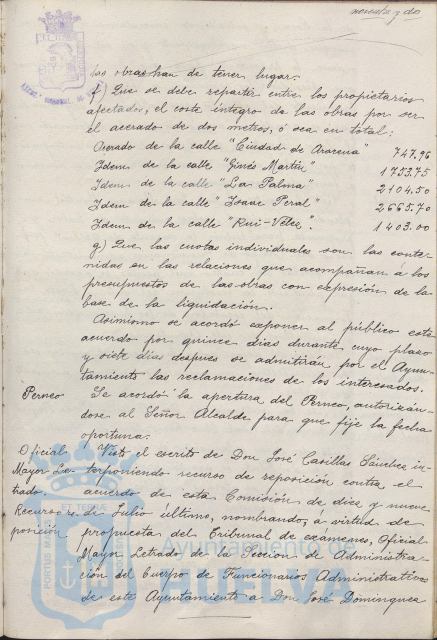 noventa y dos
las obras han de tener lugar.
f) Que se debe repartir entre los propietarios
afectados, el coste íntegro de las obras por ser
el acerado de dos metros, ó sea en total:
Acerado de la calle "Ciudad de Aracena" 747.96
Idem de la calle "Ginés Martín" 1753.75
Idem de la calle "La Palma" 2104.50
Idem de la calle "Isaac Peral" 2665.70
Idem de la calle "Rui-Vélez". 1403.00
g) Que las cuotas individuales son las conte-
nidas en las relaciones que acompañan a los
presupuestos de las obras con expresión de la
base de la liquidación.
Asimismo se acordó exponer al público este
acuerdo por quince días durante cuyo plazo
y siete días después se admitirán por el Ayun-
tamiento las reclamaciones de los interesados.
Perneo Se acordó la apertura del Perneo, autorizán-
dose al Señor Alcalde para que fije la fecha
oportuna.
Oficial Visto el escrito de Don José Casillas Sánchez in-
Mayor Le- terponiendo recurso de reposición contra el
trado. acuerdo de esta Comisión de diez y nueve
Recurso re- de Julio último, nombrando, á virtud de
posición propuesta del Tribunal de exámenes, Oficial
Mayor Letrado de la Sección de Administra-
ción del Cuerpo de Funcionarios Administrativos
de este Ayuntamiento a Don José Domínguez